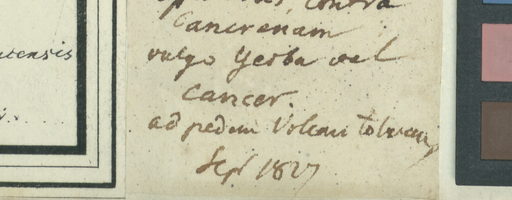 contra
Cancrenam
vulgo Yerba del
cancer.
ad pedem Volcani
Sept 1827
utensis